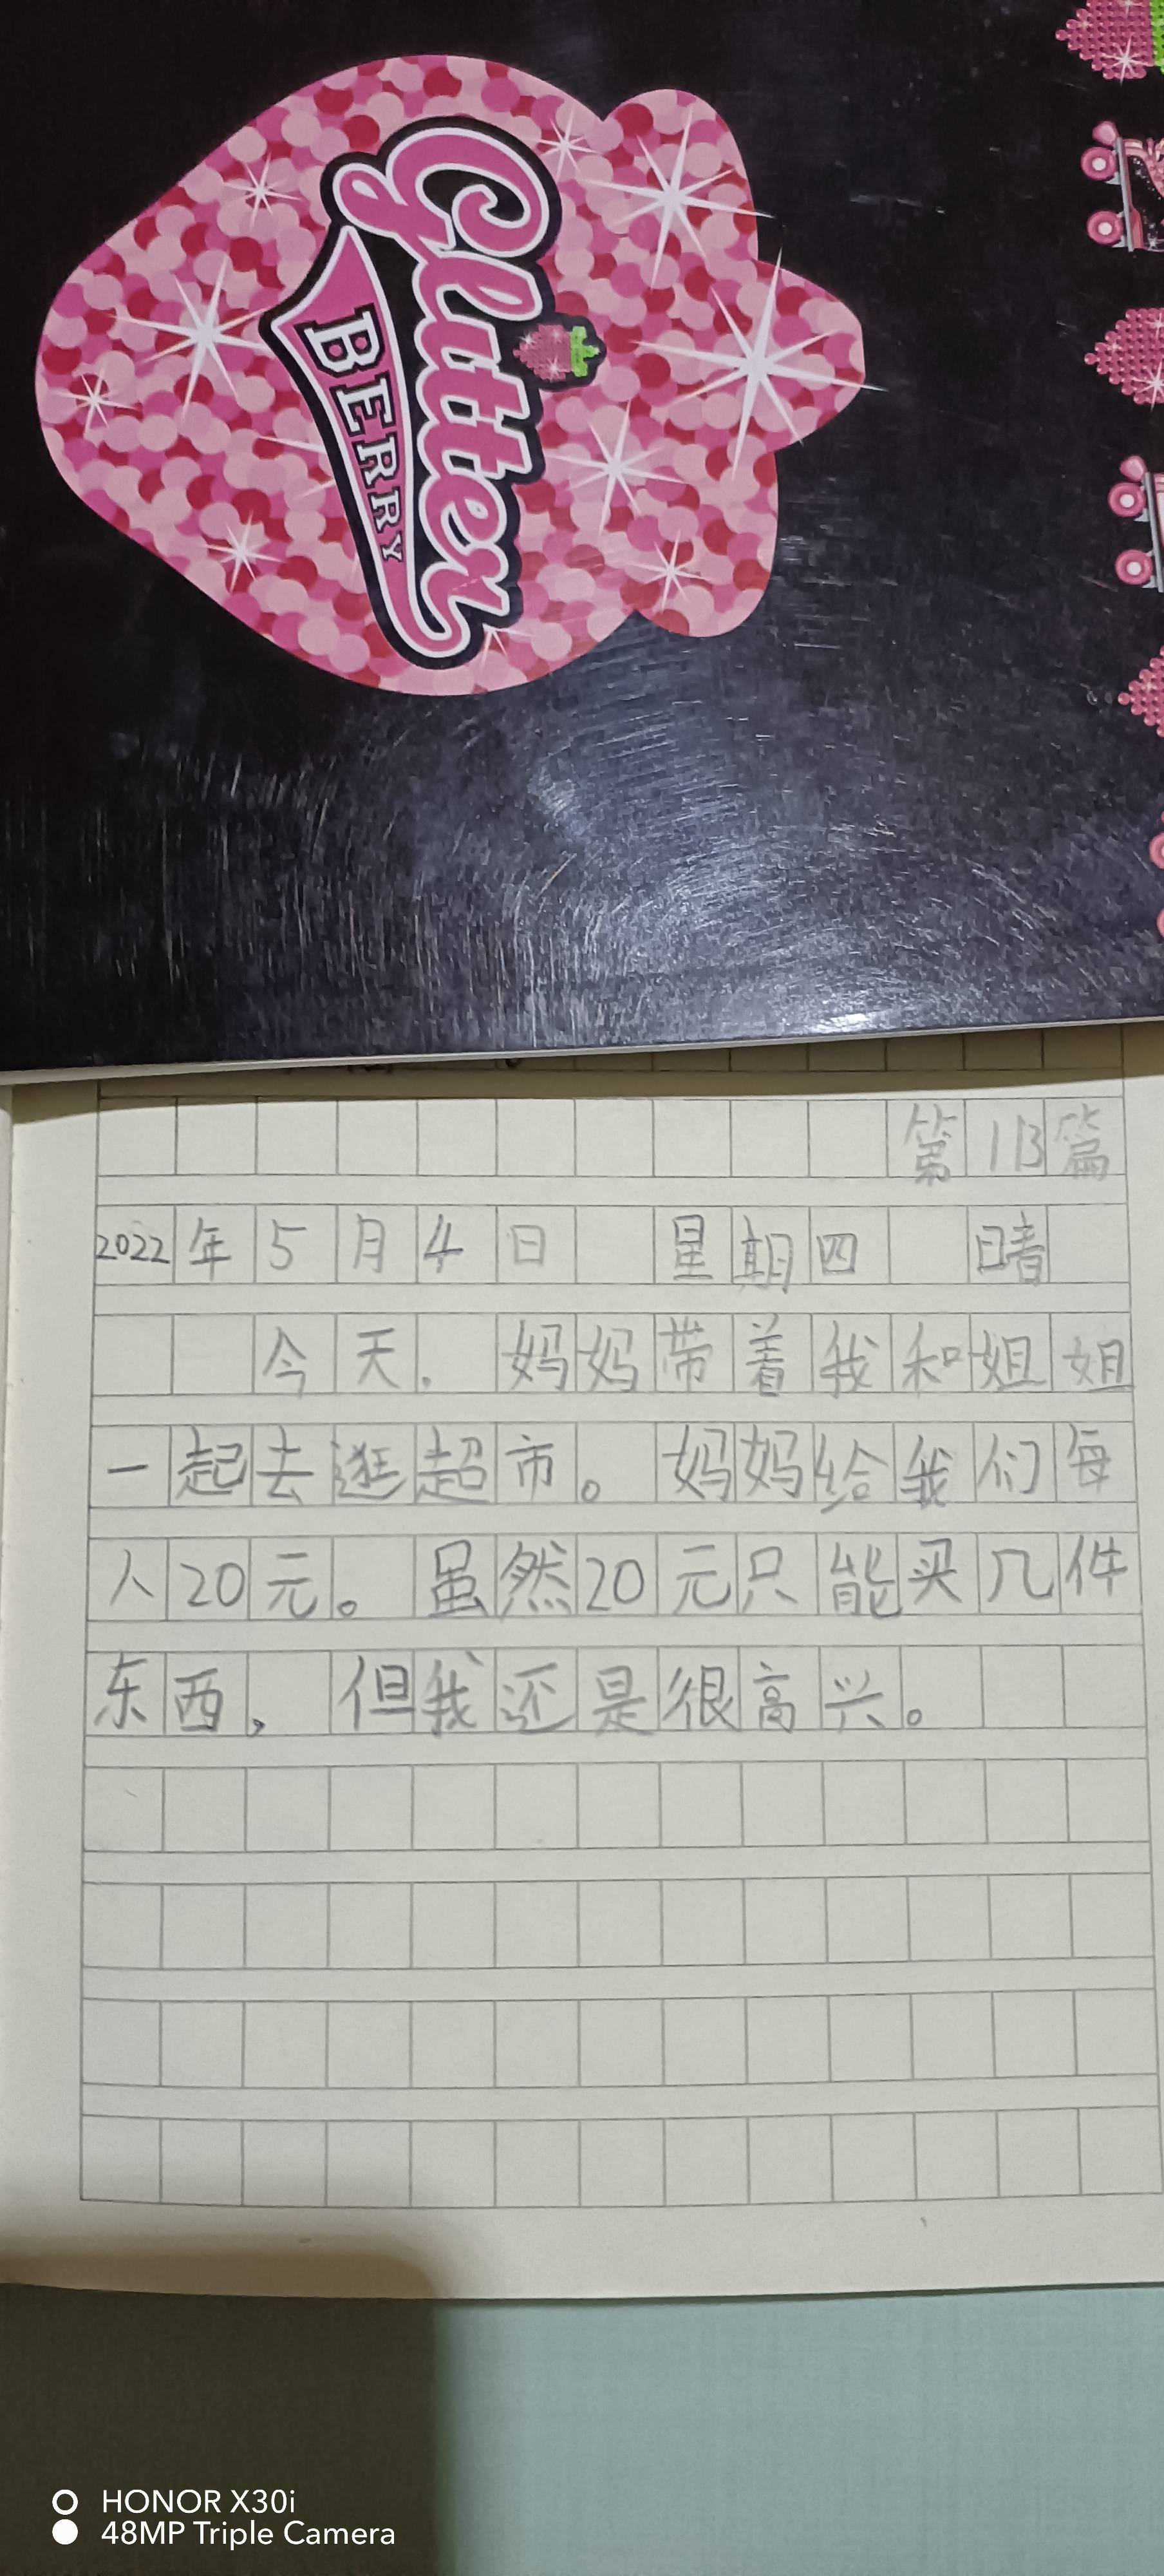 Glitter
BERRY
第113篇
2022年5月4日 星期四 晴
今天，妈妈带着我和姐姐
一起去逛超市。妈妈给我们每
人20元。虽然20元只能买几件
东西，但我还是很高兴。
HONOR X30i
48MP Triple Camera